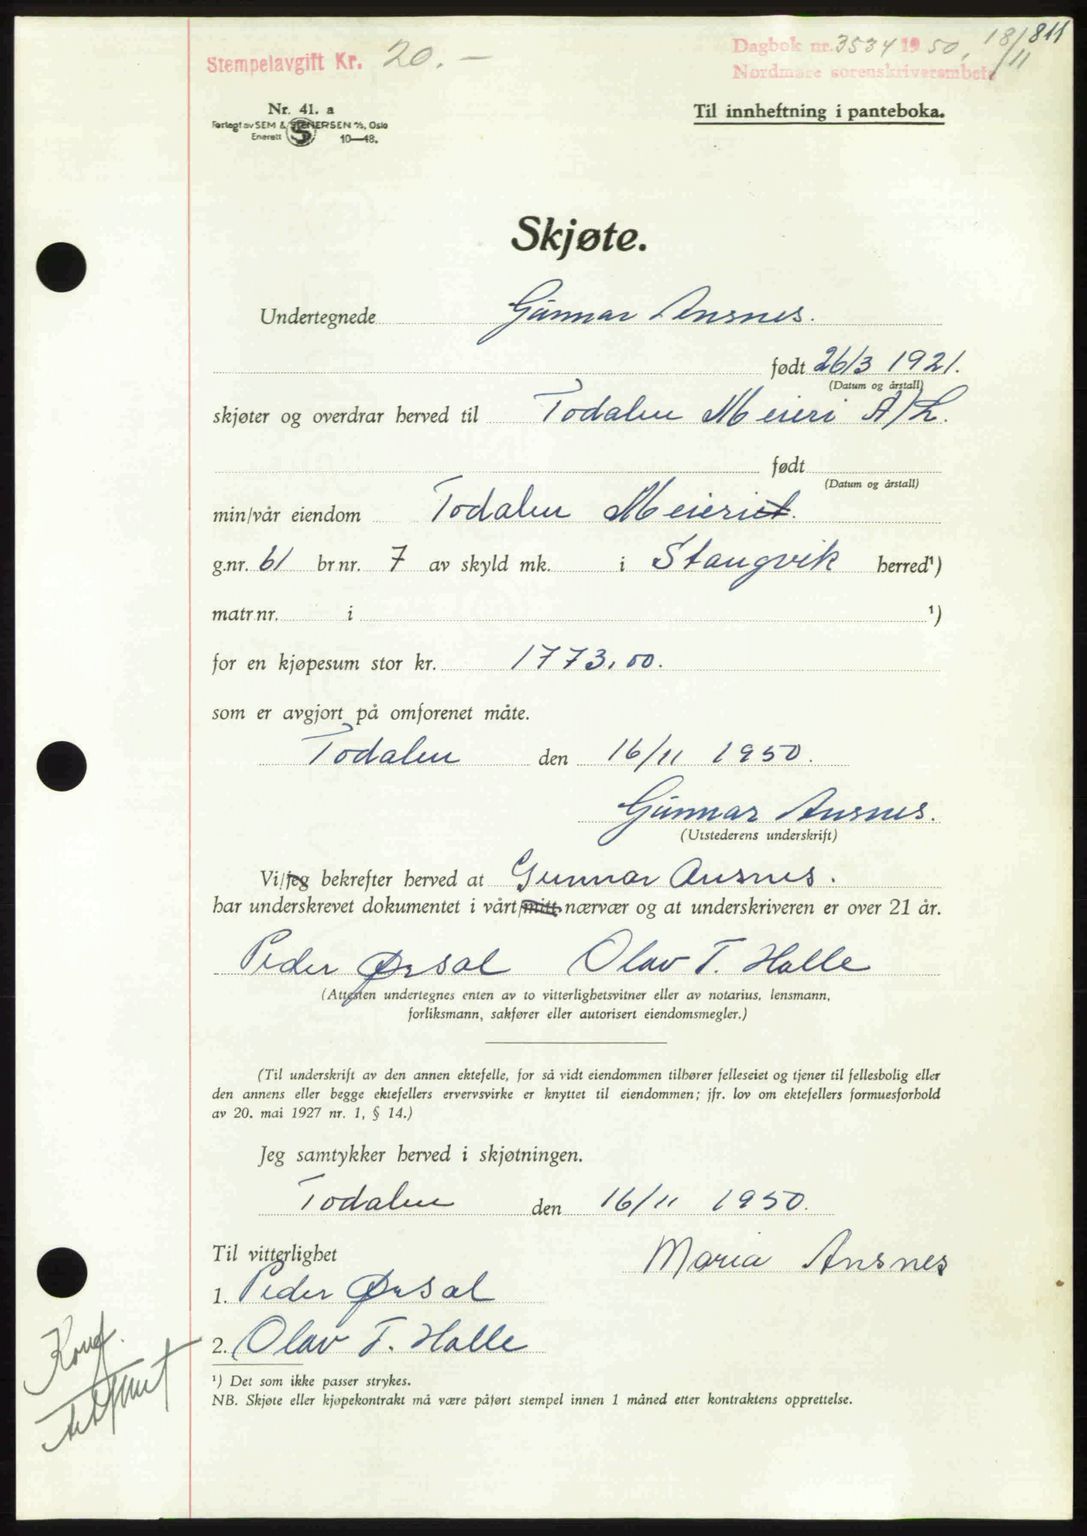 Stempelavgift Kr. 20.–
Dagbok nr. 3534 1950, 18/11 811
Nordmøre sorenskriverembete
Nr. 41. a
Forlagt av SEM & STENERSEN A/S, Oslo
Enerett 10—48.
Til innheftning i panteboka.
Skjøte.
Undertegnede Gunnar Ansnes.
født 26/3 1921.
(Datum og årstall)
skjøter og overdrar herved til Todalen Meieri A/L.
født
(Datum og årstall)
min/vår eiendom Todalen Meieriet.
g.nr. 61 br.nr. 7 av skyld mk. i Stangvik herred¹)
matr.nr. i ¹)
for en kjøpesum stor kr. 1773,00.
som er avgjort på omforenet måte.
Todalen den 16/11 1950.
Gunnar Ansnes.
(Utstederens underskrift)
Vi/jeg bekrefter herved at Gunnar Ansnes.
har underskrevet dokumentet i vårt/mitt nærvær og at underskriveren er over 21 år.
Peder Ørsal Olav T. Halle
(Attesten undertegnes enten av to vitterlighetsvitner eller av notarius, lensmann,
forliksmann, sakfører eller autorisert eiendomsmegler.)
(Til underskrift av den annen ektefelle, for så vidt eiendommen tilhører felleseiet og tjener til fellesbolig eller
den annens eller begge ektefellers ervervsvirke er knyttet til eiendommen; jfr. lov om ektefellers formuesforhold
av 20. mai 1927 nr. 1, § 14.)
Jeg samtykker herved i skjøtningen.
Todalen den 16/11 1950.
Til vitterlighet Maria Ansnes
1. Peder Ørsal
2. Olav T. Halle
¹) Det som ikke passer strykes.
NB. Skjøte eller kjøpekontrakt må være påført stempel innen 1 måned etter kontraktens opprettelse.
Konf.